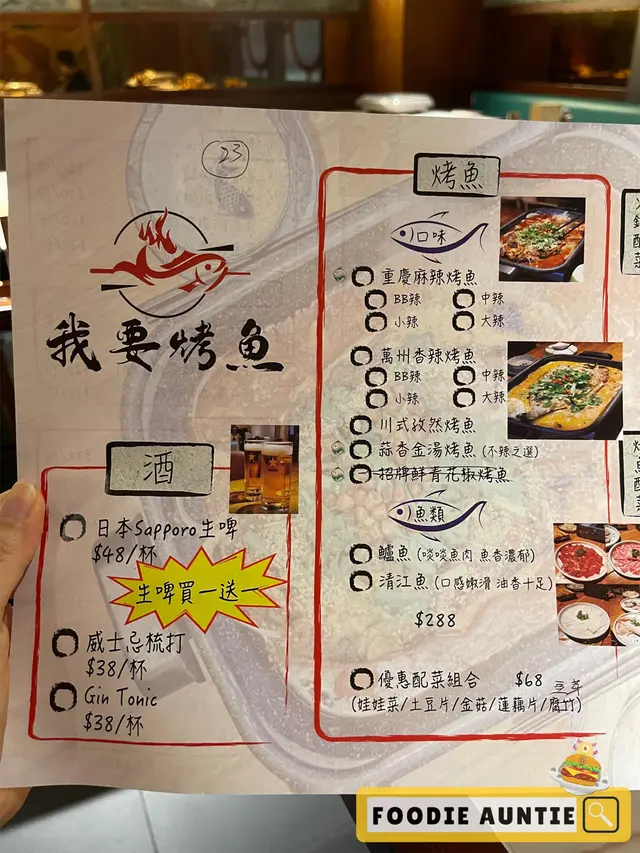 23
我要烤魚
酒
日本Sapporo生啤
$48/杯
生啤買一送一
威士忌梳打
$38/杯
Gin Tonic
$38/杯
烤魚
口味
重慶麻辣烤魚
BB辣 中辣
小辣 大辣
萬州香辣烤魚
BB辣 中辣
小辣 大辣
川式孜然烤魚
蒜香金湯烤魚 (不辣之選)
招牌鮮青花椒烤魚
魚類
鱸魚 (啖啖魚肉 魚香濃郁)
清江魚 (口感嫩滑 油香十足)
$288
優惠配菜組合 $68
(娃娃菜/土豆片/金菇/蓮藕片/腐竹)
配
菜
FOODIE AUNTIE